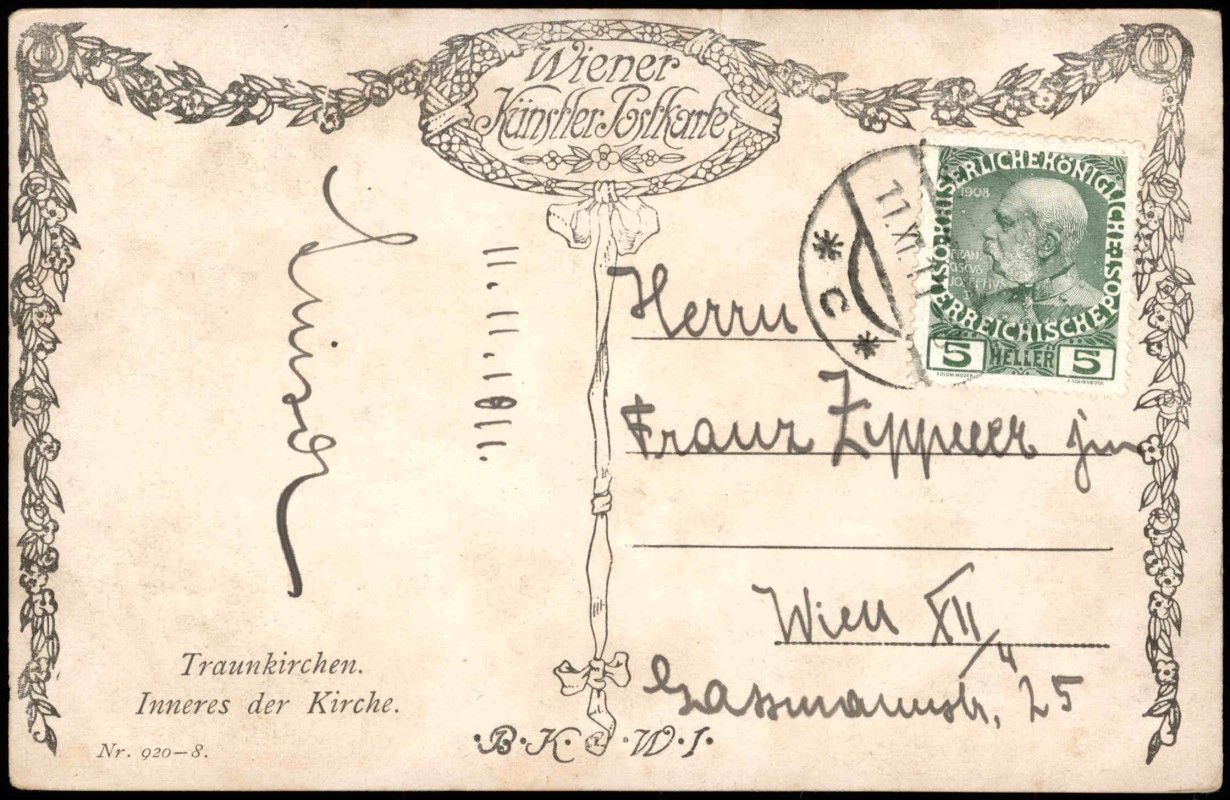 Wiener
Künstler Postkarte
11. 11. 1911.
KAISERLICHE KÖNIGLICHE
ÖSTERREICHISCHE POST
1908
FRAN
CISCVS
JOSEPHVS
5 HELLER 5
11.XI.
* C *
Herrn
Franz Zippner jun
Wien XII/4
Gassmannstr. 25
Traunkirchen.
Inneres der Kirche.
Nr. 920–8.
B·K·W·I·